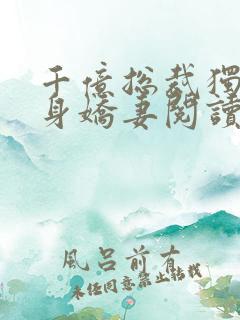 千億總裁獨
身嬌妻閱讀
風呂前有
未經同意禁止轉載